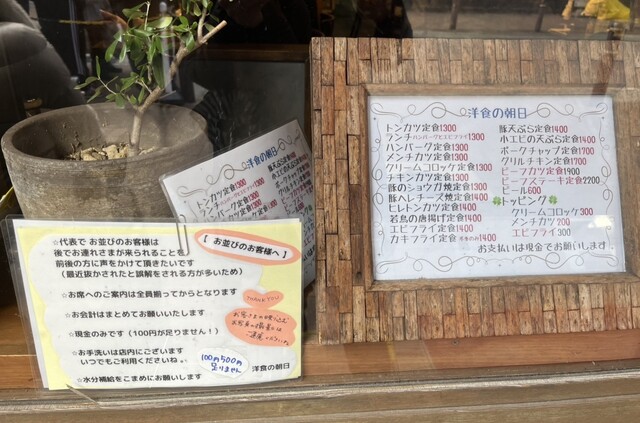 洋食の朝日
トンカツ定食1300
ランチ(ハンバーグとエビフライ)1300
ハンバーグ定食1300
メンチカツ定食1300
クリームコロッケ定食1300
チキンカツ定食1300
豚のショウガ焼定食1300
豚ヘレチーズ焼定食1400
ヒレトンカツ定食1400
若鳥の唐揚げ定食1400
エビフライ定食 1400
カキフライ定食 冬季のみ1400
豚天ぷら定食1400
小エビの天ぷら定食1400
ポークチャップ定食1700
グリルチキン定食1700
ビーフカツ定食1900
ビーフステーキ定食2200
ビール600
🍀トッピング🍀
クリームコロッケ300
メンチカツ 200
エビフライ300
お支払いは現金でお願いします
洋食の朝日
トンカツ定食1300
【 お並びのお客様へ 】
☆代表で お並びのお客様は
後でお連れさまが来られることを
前後の方に声をかけて頂きたいです
(最近抜かされたと誤解をされる方が多いため)
☆お席へのご案内は全員揃ってからとなります
☆お会計はまとめてお願いいたします
☆現金のみです(100円が足りません!)
☆お手洗いは店内にございます
いつでもご利用くださいね。
☆水分補給をこまめにお願いします
THANK YOU
100円500円
足りません
洋食の朝日